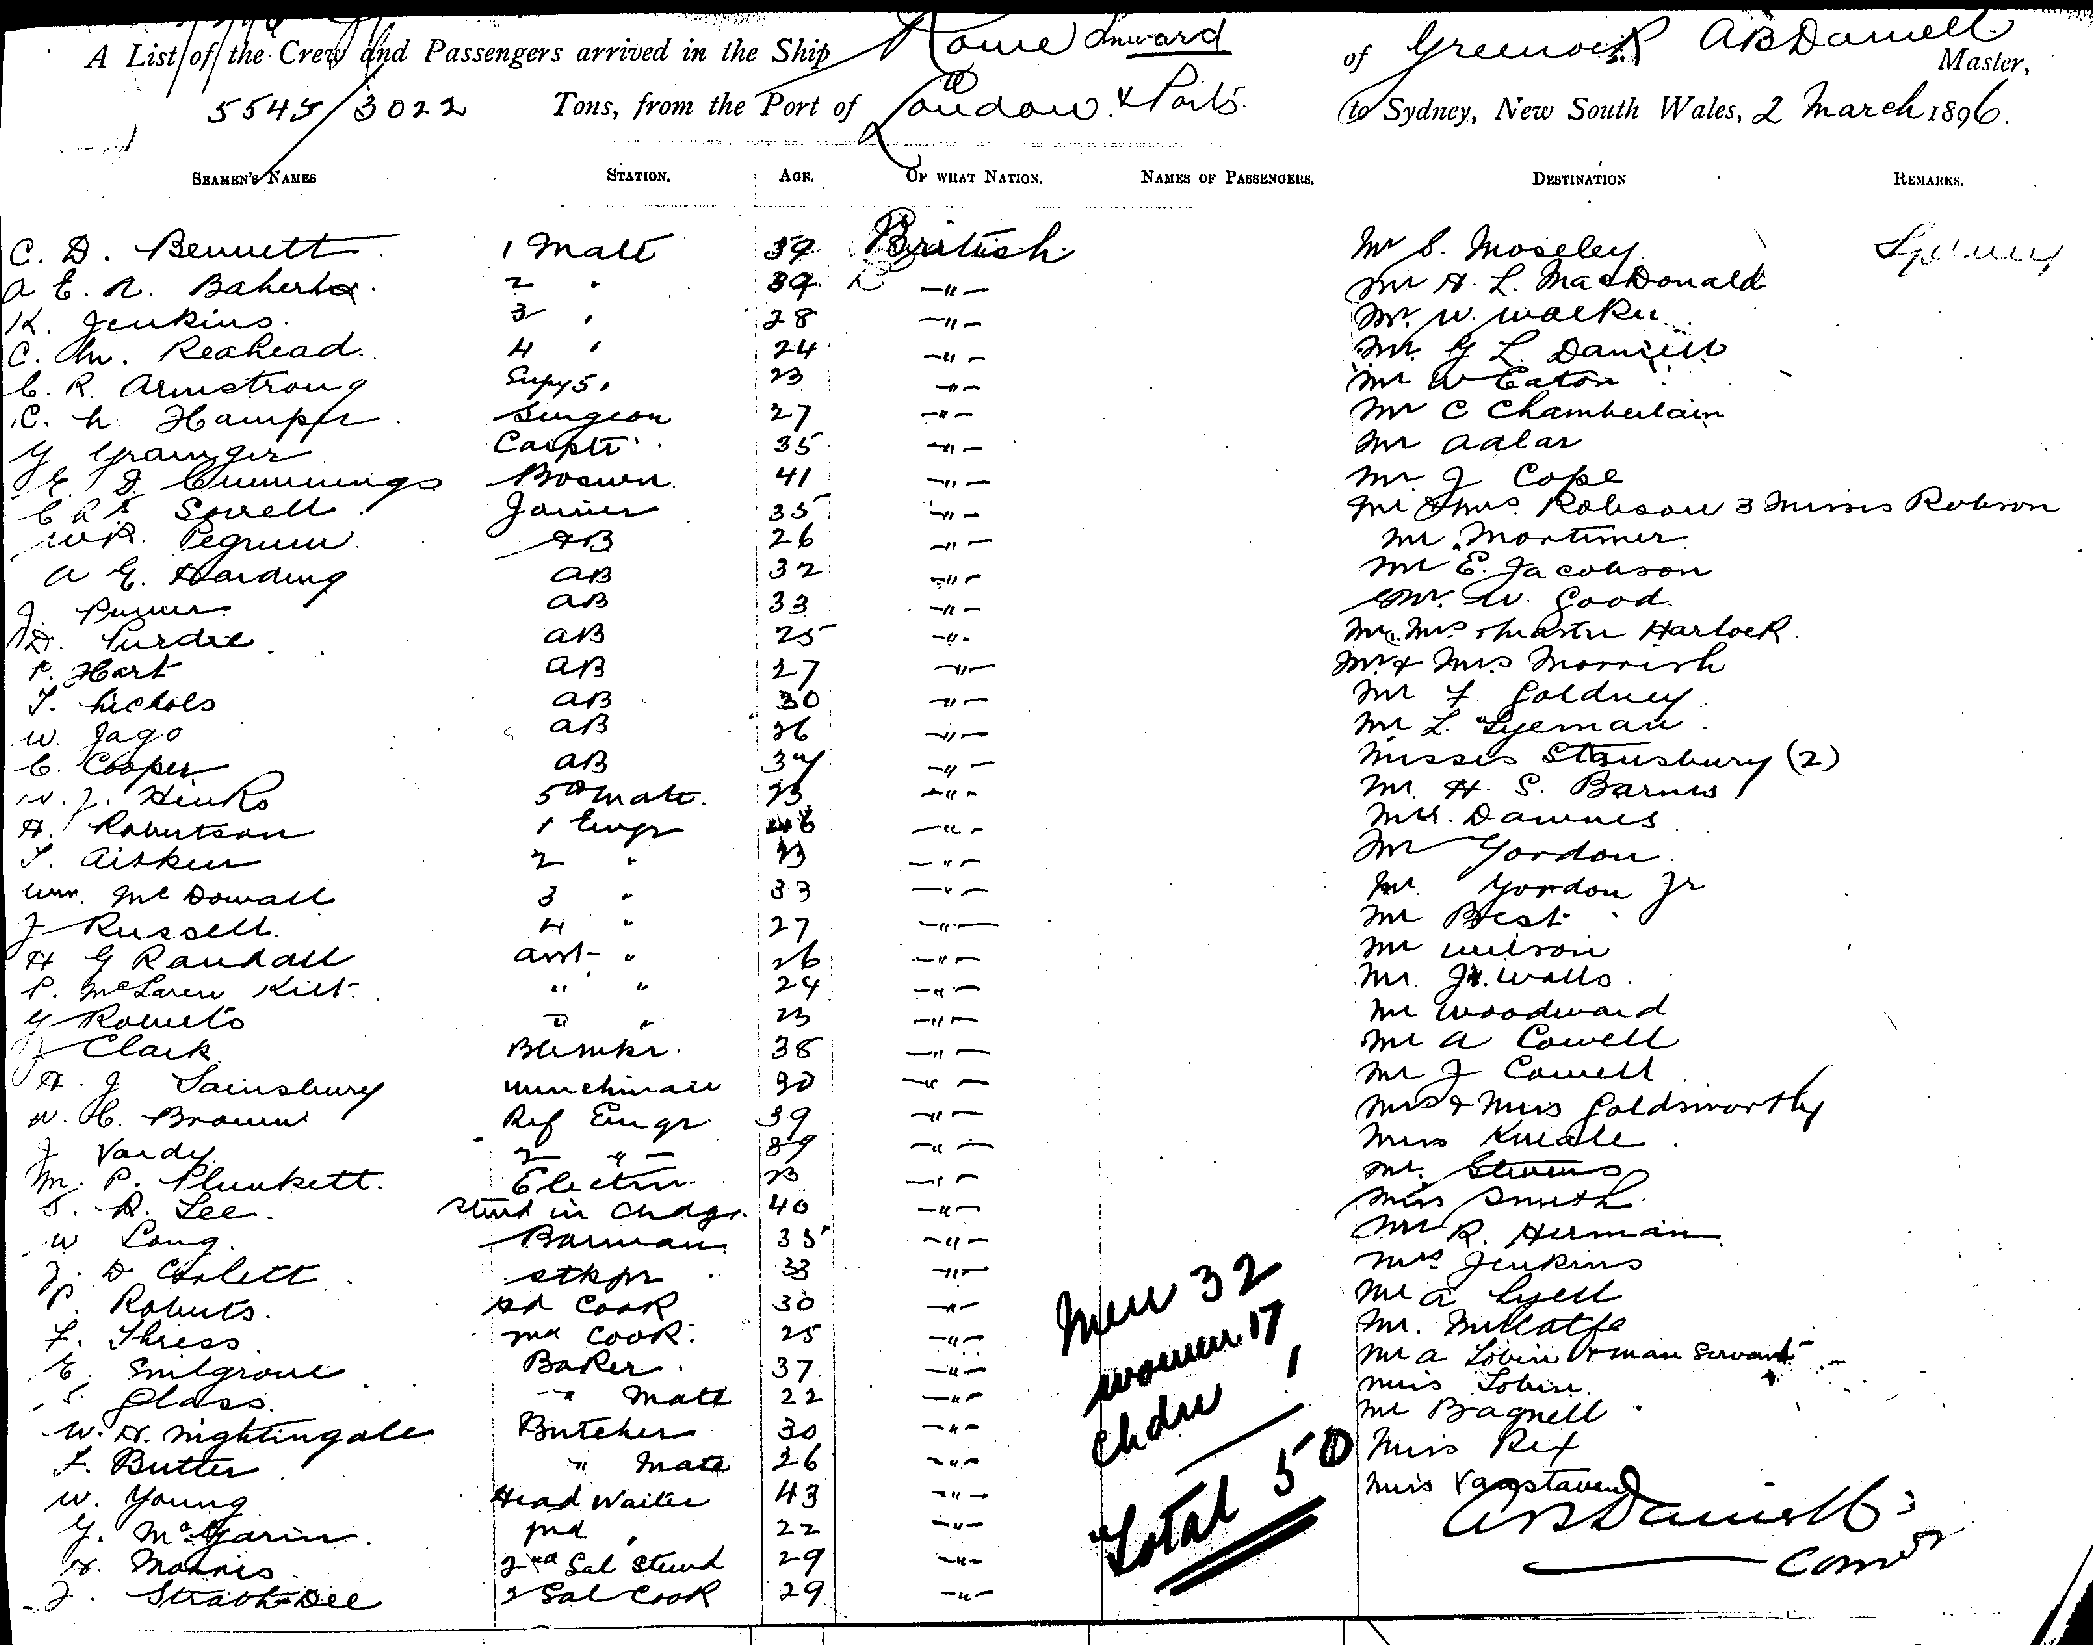 A List of the Crew and Passengers arrived in the Ship Rome Inward of Greenock AB Daniell Master,
5545/3022 Tons, from the Port of London & Ports to Sydney, New South Wales, 2 March 1896.
SEAMEN'S NAMES STATION. AGE. OF WHAT NATION. NAMES OF PASSENGERS. DESTINATION REMARKS.
C. D. Bennett 1 Mate 39 British Mr S. Moseley Sydney
A E. R. 2 " 39 -"- Mr H. L. MacDonald
K. Jenkins. 3 " 28 -"- Mr. W. Walker
C. M. Reahead. 4 " 24 -"- Mr. G L. Daniell
C. R. Armstrong Supy 5 " 23 -"- Mr W Eaton
C. N. Hamper Surgeon 27 -"- Mr C Chamberlain
G Grainger Carptr 35 -"- Mr Aalar
E. D. Cummings Boswn 41 -"- Mr J Cope
Sorell Joiner 35 -"- Mr & Mrs. Robson 3 Misses Robson
W.R. Pegrum AB 26 -"- Mr. Mortimer
A E. Harding AB 32 -"- Mr E. Jacobson
J. AB 33 -"- Mr. W. Good
D. Purdie AB 25 -"- Mr. Mrs & Master Harlock.
P. Hart AB 27 -"- Mr & Mrs Morrish
T. Nichols AB 30 -"- Mr F Goldney
W. Jago AB 26 -"- Mr L. Syeman
C. Cooper AB 34 -"- Misses Stansbury (2)
W. J. Hinks 5th Mate. 23 -"- Mr. H. S. Barnes
A. Robertson 1 Engr 46 -"- Mrs. Dawnes
T. Aitken 2 " 33 -"- Mr Gordon
Wm. McDowall 3 " 33 -"- Mr. Gordon Jr
J Russell. 4 " 27 -"- Mr Best
H G Randall Asst " 26 -"- Mr Wilson
P. McLaren Kilt " " 24 -"- Mr. J. Walls.
G Roberts " " 23 -"- Mr Woodward
J Clark Blrmkr. 38 -"- Mr A Cowell
A. J Sainsbury Winchman 30 -"- Mr J Cowell
W. C. Brown Ref Engr 39 -"- Mrs & Miss Goldsworthy
J Vardy 2 " 39 -"- Miss Kneale
M. P. Plunkett. Electrn 23 -"- Mr. Stevens
S. R. Lee. Stwd in Chdge. 40 -"- Miss Smith
W Long. Barman 35 -"- Mr R. Herman
J. D Corlett stkpr 33 -"- Mrs Jenkins
P. Roberts. Sd Cook 30 -"- Mr A Lyell
F. Thress. Md Cook. 25 -"- Mr. Metcalfe
E. Smilgrove Baker 37 -"- Mr A Tobin & man Servant
S. Glass. " Mate 22 -"- Miss Tobin.
W. H. Nightingale Butcher 30 -"- Mr Bagnell
F. Butter " Mate 26 -"- Miss Rex
W. Young Head Waiter 43 -"- Miss Vanstaven
G. McGarin. 2nd " 22 -"-
H. Morris 2nd Sal Stewd 29 -"-
J. Strath-Dee 2 Sal Cook 29 -"-
Men 32
women 17
Chdn 1
Total 50
AB Daniell
Comdr